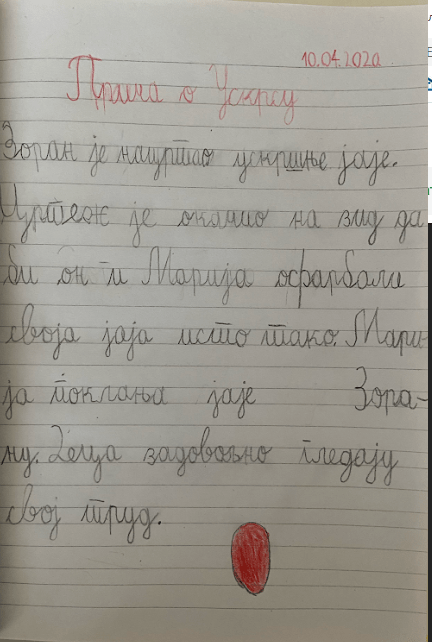 10.04.2020.
Прича о Ускрсу
Зоран је нацртао ускршње јаје.
Цртеж је окачио на зид да
би он и Марија офарбали
своја јаја исто тако. Мари-
ја поклања јаје Зора-
ну. Деца задовољно гледају
свој труд.